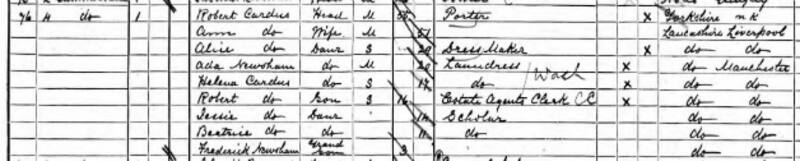 76 4 do 1 Robert Cardus Head M 55 Porter X Yorkshire n.k
Ann do Wife M 51 Lancashire Liverpool
Alice do Daur S 29 Dress Maker X do do
Ada Newsham do M 20 Laundress X do Manchester
Helena Cardus do S 17 do /Wash X do do
Robert do Son S 16 Estate Agents Clerk CC X do do
Jessie do Daur 14 Scholar do do
Beatrice do do 11 do do do
Frederick Newsham Grand Son 3 do do